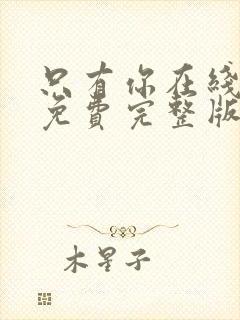 只有你在线
免费完整版
木星子